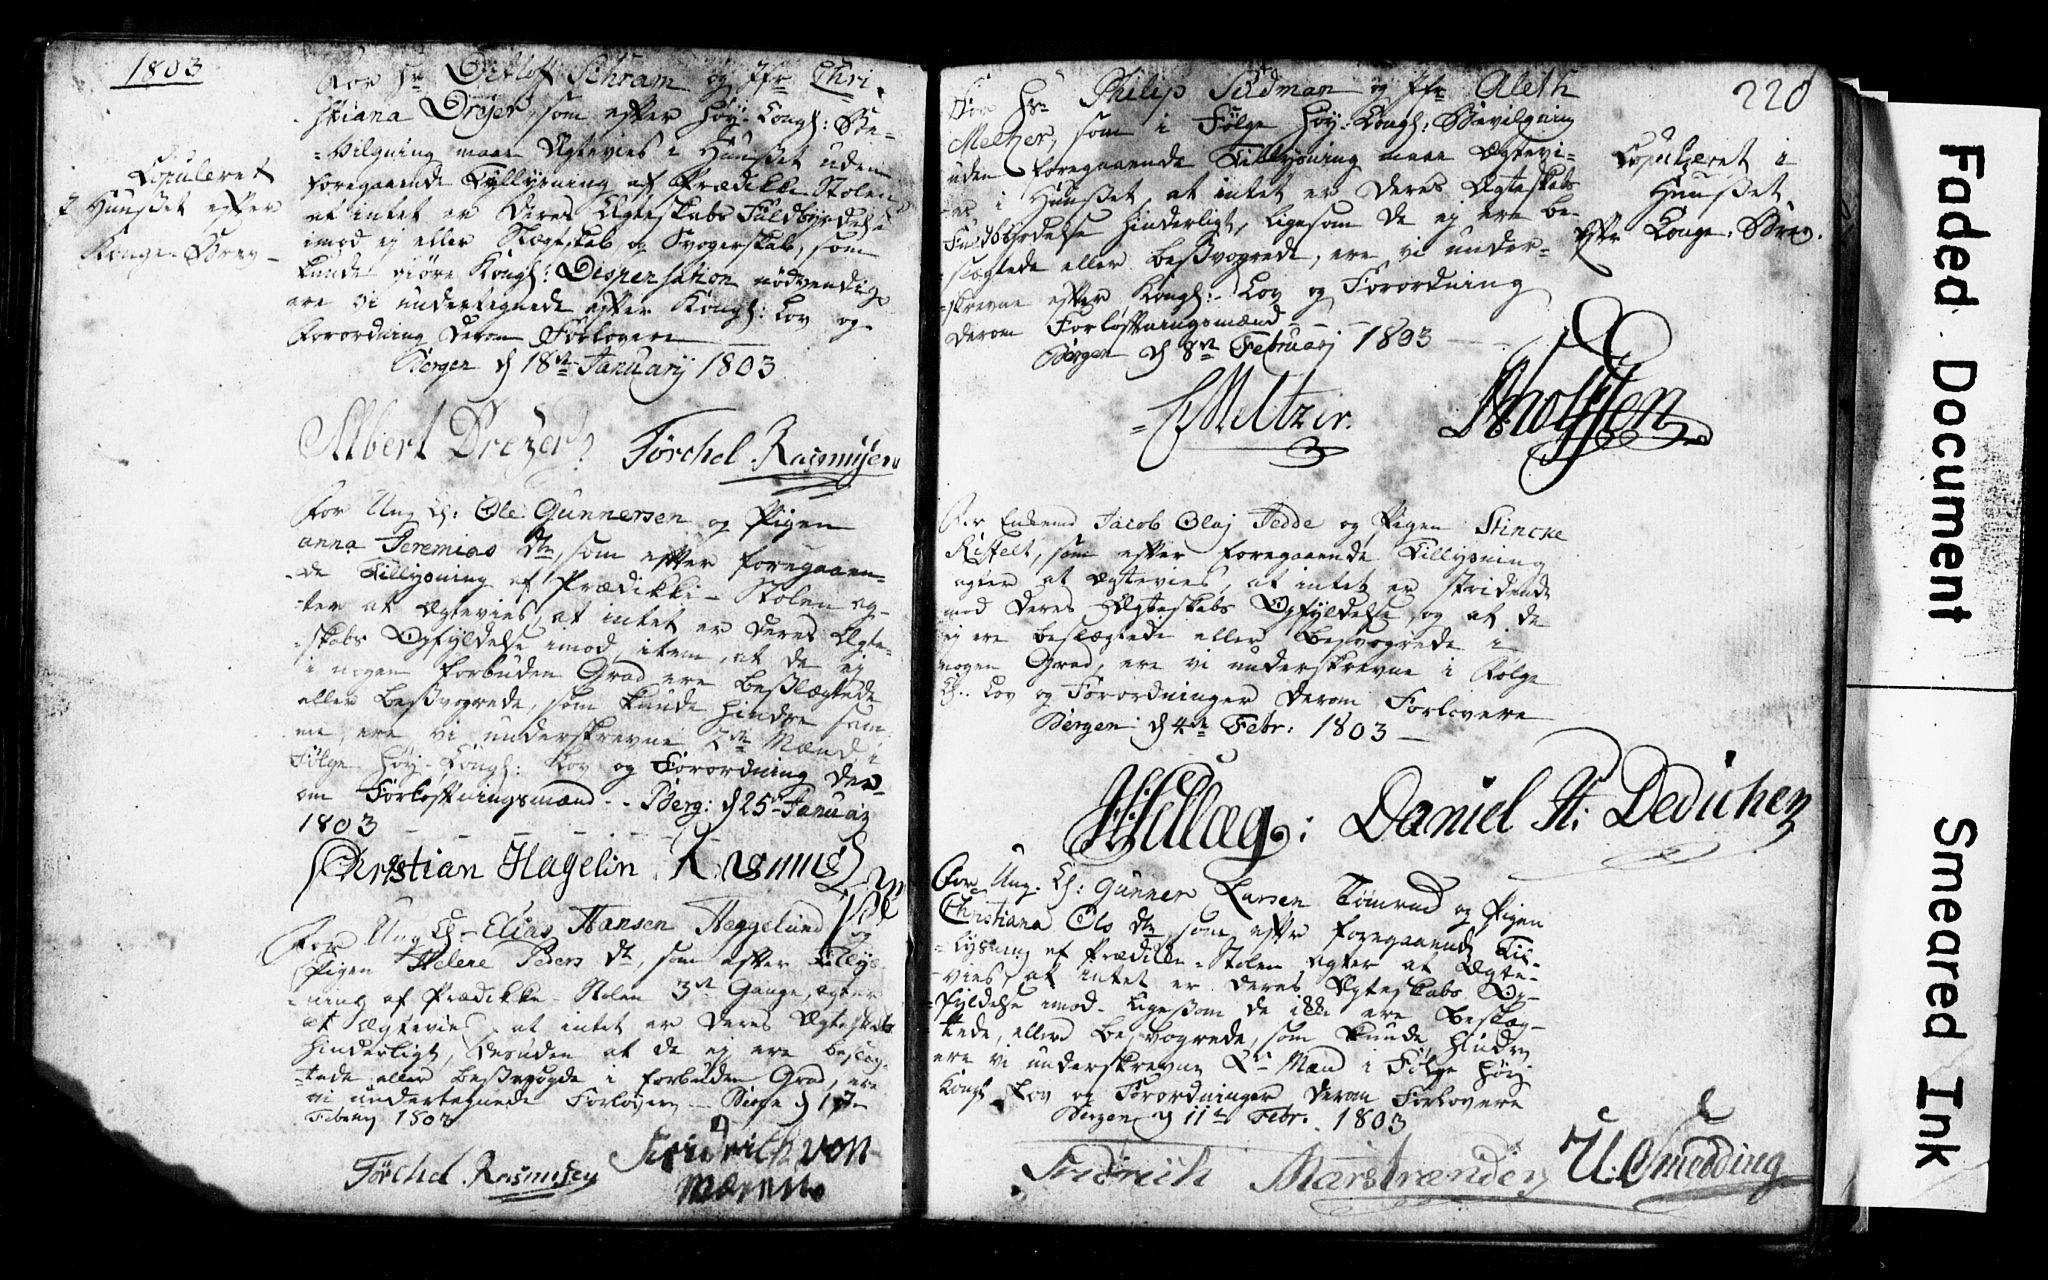 1803
For Hr Ditlof Schram og Jfr Chri-
stiana Dreyer, som efter Høy-Kongl: Be-
-vilgning maae Ægtevies i Huuset uden
foregaaende Tillysning af Prædikke Stolen
at intet er Deres Ægteskabs Fuldbyrdelse
imod ej eller Slægtskab og Svogerskab, som
kunde giøre Kongl: Dispensation nødvendig,
ere vi undertegnede efter Kongl: Lov og
Forordning derom Forlovere
Bergen d 18de January 1803
Copuleret
i Huuset efter
Konge-Brev-
Albert Dreyer
Törchel Rasmusen
For Ung K: Ole Gunnersen og Pigen
anna Jeremias dtr, som efter foregaaen-
-de Tillysning af Prædikke-Stolen ag-
-ter at Ægtevies, at intet er Deres Ægte-
-skabs Opfyldelse imod, item, at de ej
i nogen forbuden Grad ere Beslægtede
eller Besvogrede, som kunde hindre sam-
me, ere vi underskrevne 2de Mænd i
Følge Høy-Kongl: Lov og Forordning der-
om Forløftningsmænd.. Berg: d 25 Januar
1803
Christian Hagelin Rasmus
For Ung K- Elias Hansen Heggelund og
Pigen Helene Peders dtr, som efter Tillys-
-ning af Prædikke-Stolen 3de Gange, agter
at Ægtevies, at intet er Deres Ægteskab
hinderligt, desuden at de ej ere beslæg-
-tede eller Besvogrede i forbuden Grad, ere
vi undertegnede Forlovere
Febru 1803
Törchel Rasmusen
Fridrich von
220
For Hr Philip Sudman og Jfr Aleth
Meltzer, som i Følge Høy-Kongl: Bevilgning
uden foregaaende Tillysning maae Ægtevi-
-es i Huuset, at intet er Deres Ægteskabs
Fuldbyrdelse hinderligt, ligesom de ej ere be-
slægtede eller besvogrede, ere vi under-
-skrevne efter Kongl:- Lov og Forordning
derom Forløftningsmænd
Bergen d 8de Februarj 1803
Copuleret i
Huuset
efter Konge-Brev.
Meltzer.
For Enkemd Jacob Olaj Jedde og Pigen Stincke
Ristelt, som efter foregaaende Tillysning
agter at Ægtevies, at intet er stridende
mod Deres Ægteskabs Opfyldelse, og at de
ej ere beslægtede eller Besvogrede i
nogen Grad, ere vi underskrevne i Følge
K:. Lov og Forordninger derom Forlovere
Bergen d 4de Febr: 1803
Daniel H: Dedichen
For Ung-K: Gunner Larsen Tømrud og Pigen
Christiana Ols dtr, som efter foregaaende Til-
-lysning af Prædikke-Stolen agter at Ægte-
-vies, at intet er Deres Ægteskabs Op-
-fyldelse imod. ligesom de ikke ere beslæg-
-tede, eller Besvogrede, som kunde hindre,
ere vi underskrevne 2de Mænd i Følge Høy-
Kongl Lov og Forordninger derom Forlovere
Bergen d 11te Febr. 1803
Fridrich Marstrænder U: Smedding
Faded Document
Smeared Ink